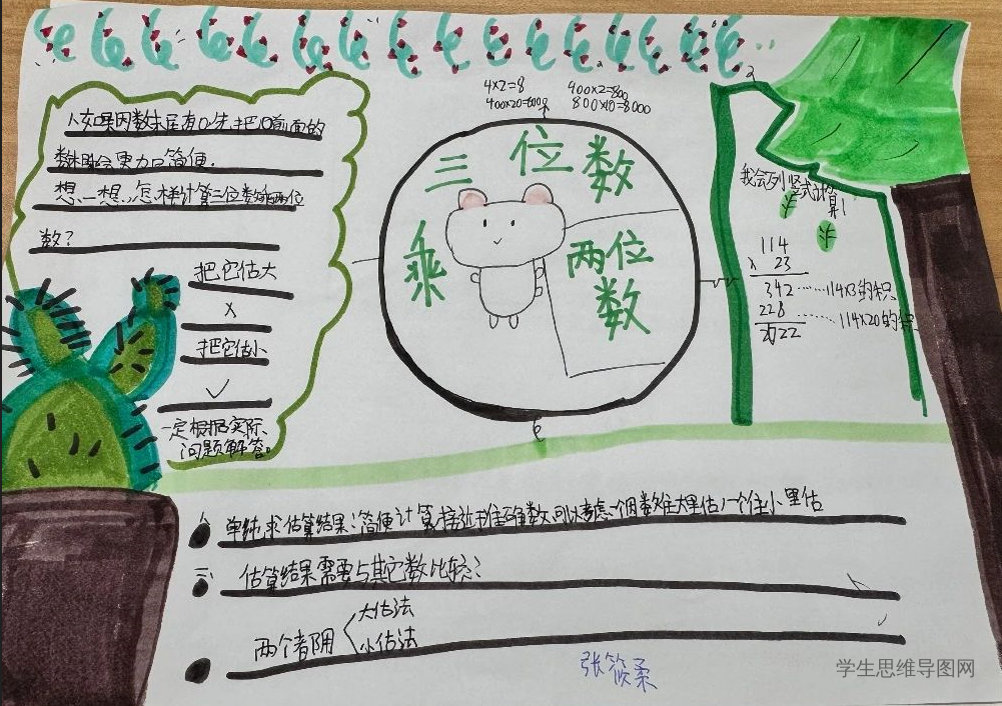 4×2=8
400×20=8000
400×2=800
800×10=8000
三位数
乘
两位
数
人如果因数末尾有0,先把0前面的
数相乘会更加简便.
想一想,怎样计算三位数乘两位
数?
把它估大
×
把它估小
✓
一定根据实际
问题解答。
我会列竖式计
算!
114
× 23
342 ……114×3的积
228 ……114×20的积
2622
单纯求估算结果:简便计算,接近准确数,可以考虑一个因数往大里估,一个往小里估
二、估算结果需要与其它数比较:
两个都用
大估法
小估法
张筱柔
学生思维导图网